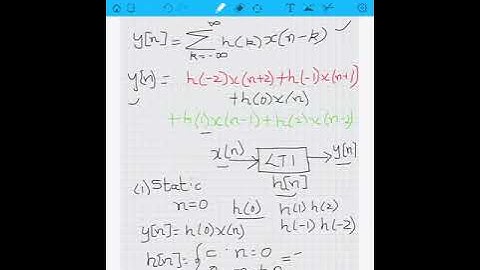 y[n] = ∑ h(k) x(n-k) ✓
k=-∞ ∞
y(n) = h(-2)x(n+2) + h(-1)x(n+1)
+ h(0)x(n)
+ h(1)x(n-1) + h(2)x(n-2)
x(n) → LTI → y[n]
h[n]
(1) Static
n=0 h(0) h(1) h(2)
y[n] = h(0)x(n) h(-1) h(-2)
h[n] = { c · n=0 =